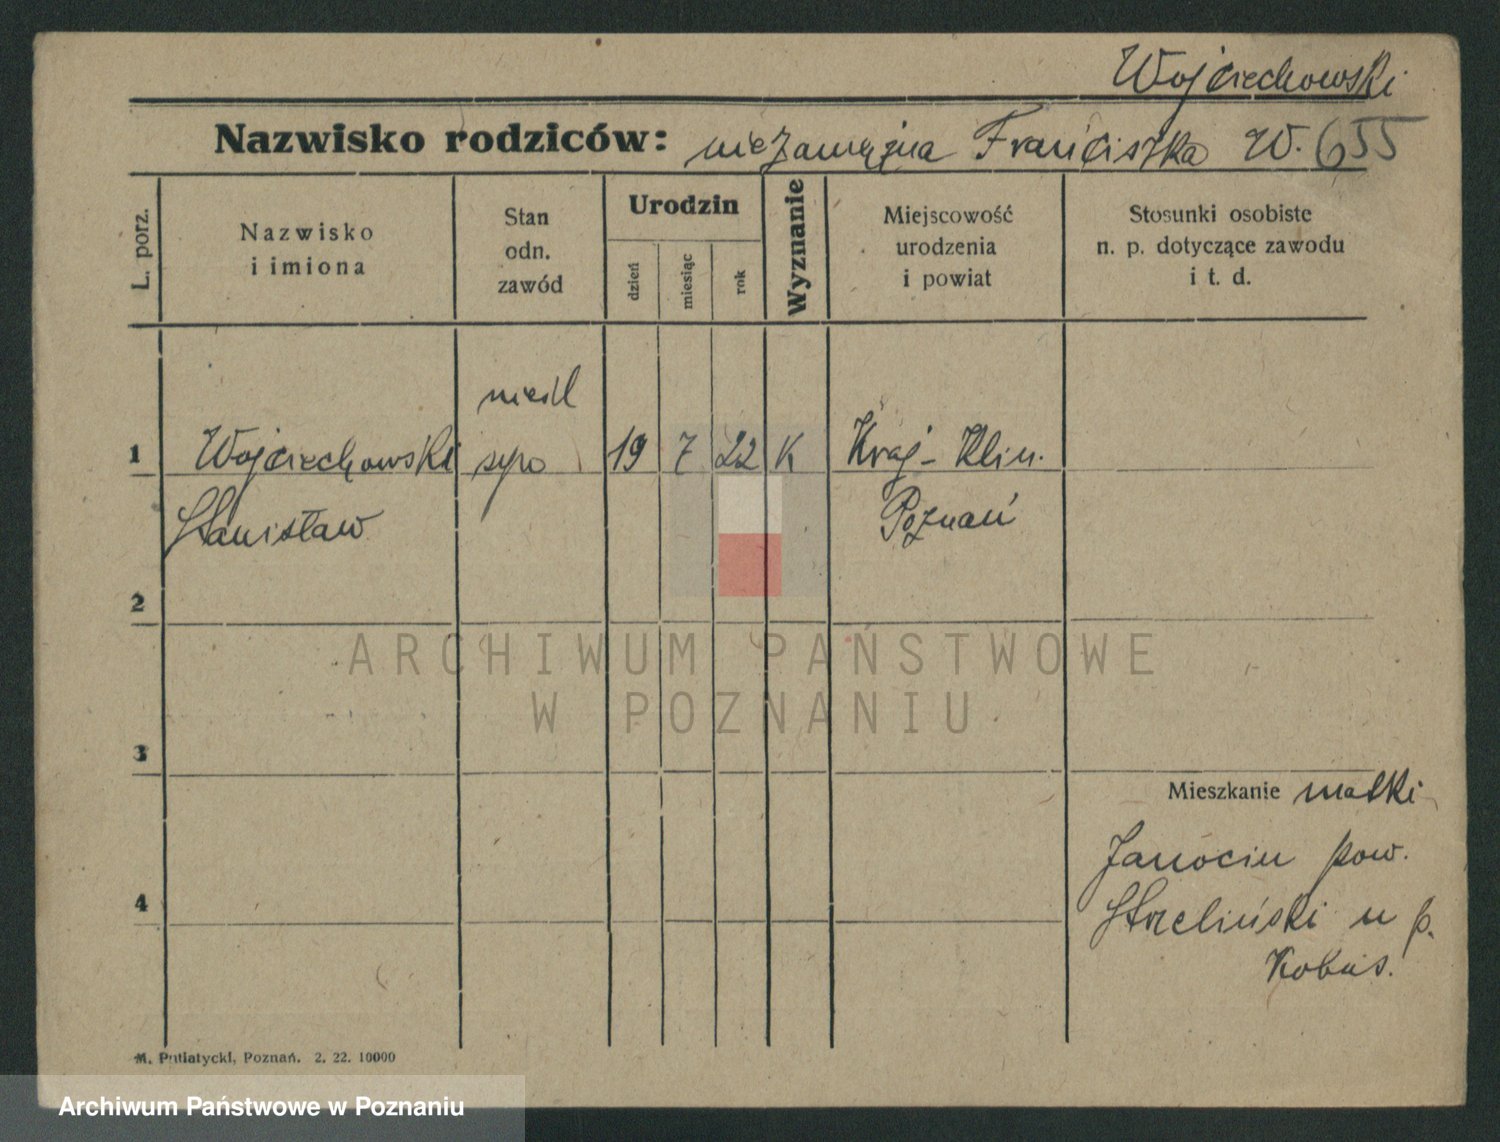 Wojciechowski
Nazwisko rodziców: niezamężna Franciszka W. 655
L. porz.
Nazwisko
i imiona
Stan
odn.
zawód
Urodzin
dzień
miesiąc
rok
Wyznanie
Miejscowość
urodzenia
i powiat
Stosunki osobiste
n. p. dotyczące zawodu
i t. d.
nieśl
1 Wojciechowski syn 19 7 22 K Kraj- Klin.
Stanisław Poznań
2
ARCHIWUM PAŃSTWOWE
W POZNANIU
3
Mieszkanie matki
Janocin pow.
4
Strzeliński u p.
Kobus.
M. Putiatycki, Poznań. 2. 22. 10000
Archiwum Państwowe w Poznaniu